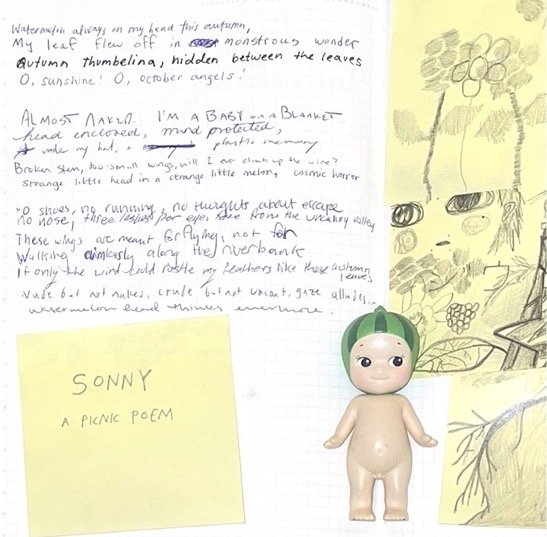 Watermelon always on my head this autumn,
My leaf flew off in monstrous wonder
Autumn Thumbelina, hidden between the leaves
O, sunshine! O, october angels!
ALMOST NAKED. I'M A BABY on a BLANKET
head enclosed, mind protected,
under my hat, a plastic memory
Broken stem, too-small wings, will I climb up the vine?
strange little head in a strange little melon, cosmic horror
no shoes, no running, no thoughts about escape
no nose, three lashes per eye, face from the uncanny valley
These wings are meant for flying, not for
Walking aimlessly along the riverbank
If only the wind could rustle my feathers like those autumn leaves
Nude but not naked, crude but not vacant, gaze alludes...
watermelon head thinks evermore.
SONNY
A PICNIC POEM